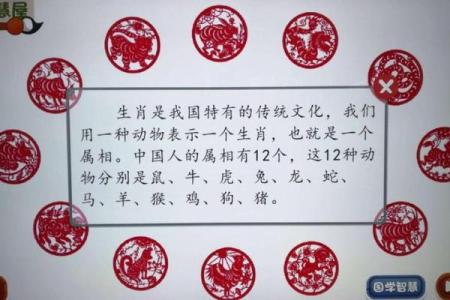 慧屋
生肖是我国特有的传统文化，我们
用一种动物表示一个生肖，也就是一个
属相。中国人的属相有12个，这12种动
物分别是鼠、牛、虎、兔、龙、蛇、
马、羊、猴、鸡、狗、猪。
国学智慧